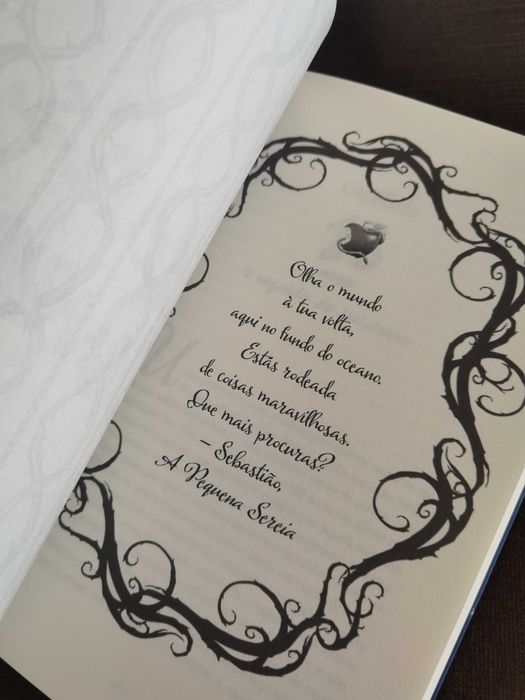 Olha o mundo
à tua volta,
aqui no fundo do oceano.
Estás rodeada
de coisas maravilhosas.
Que mais procuras?
– Sebastião,
A Pequena Sereia